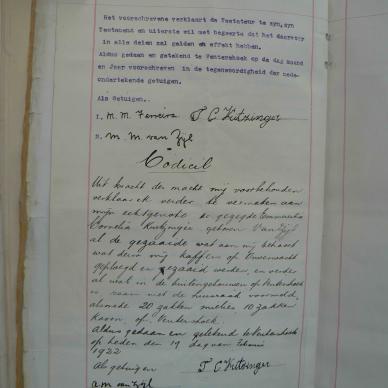 Het voorschrevene verklaart de Testateur te zyn, zyn
Testament en uiterste wil met begeerte dat het daarstev
in alle delen zal gelden en effekt hebben.
Aldus gedaan en getekend te Ventershoek op de dag maand
en Jaar voorschreven in de tegenwoordigheid der nede-
ondertekende getuigen.
Als Getuigen.
1. M. M. Ferreira T C Kritzinger
2. M. M. van Zijl
Codicil
Uit kracht der macht mij voorbehouden
verklaar ik verder te vermaken aan
mijn echtgenote de gezegde Emmarentia
Cornelia Kritzinger geboren Van Zijl
al de gezaaide wat aan mij behoort
wat deur mij kaffers op
geploegd en gezaaid werden, en verder
al wat in de buitengebouwen op Ventershoek
is saam met de huisraad voormeld,
alsmede 20 zakken mielies 10 zakken
koren op Ventershoek.
Aldus gedaan en getekend te Ventershoek
op heden den 19 dag van Februari
1922
Als getuigen T. C Kritzinger
A. M. van Zijl